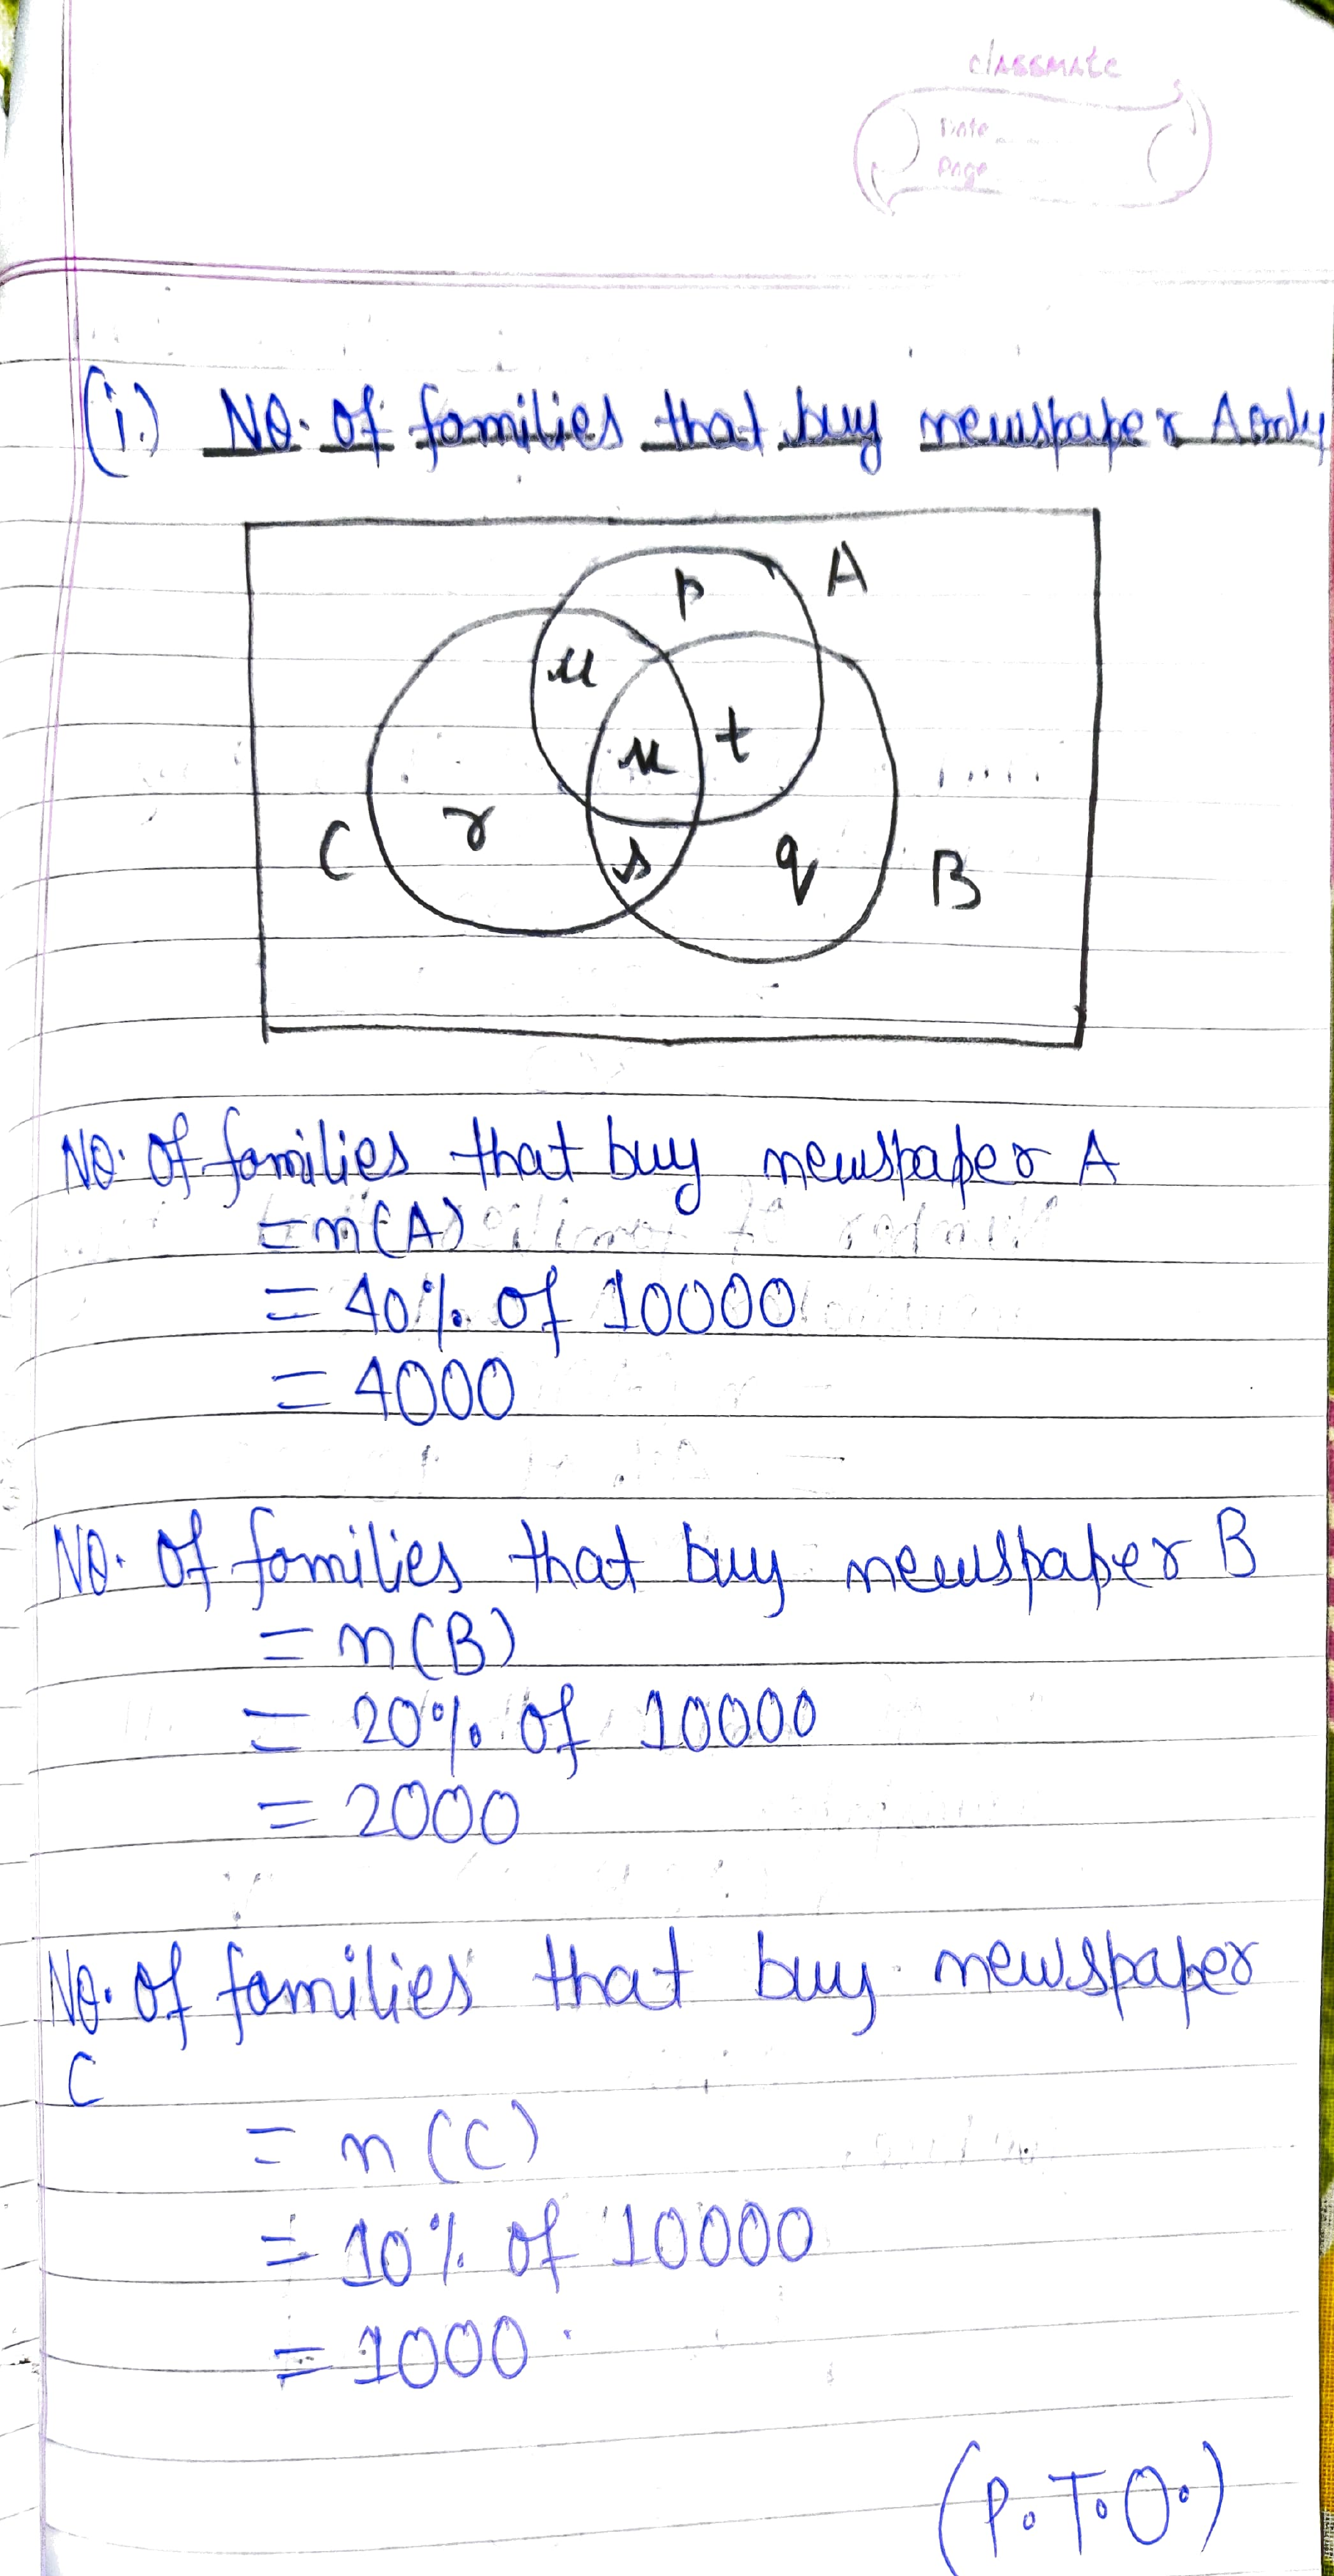 classmate
Date
Page
(i.) No. of families that buy newspaper A only
A
p
u
x t
C r
s q B
No. of families that buy newspaper A
= n(A)
= 40% of 10000
= 4000
No. of families that buy newspaper B
= n(B)
= 20% of 10000
= 2000
No. of families that buy newspaper
C
= n(C)
= 10% of 10000
= 1000
(P.T.O.)